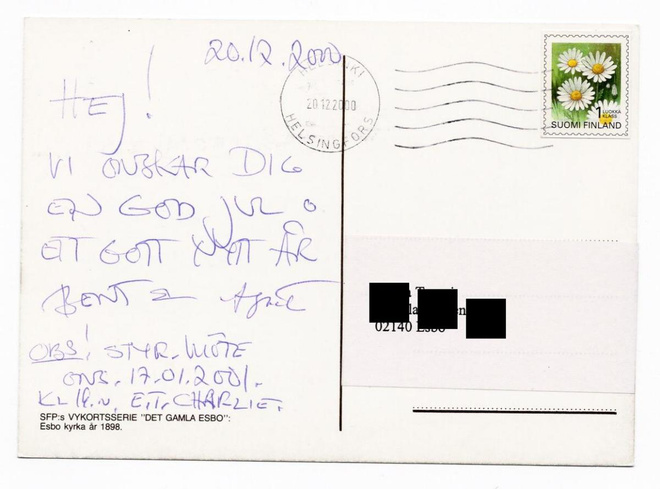 20.12.2000
HEJ!
VI ÖNSKAR DIG
EN GOD JUL O
ETT GOTT NYTT ÅR
BENT &
OBS! STYR. MÖTE
ONS. 17.01.2001.
KL 19. E.T. CHARLIE.
SFP:s VYKORTSSERIE "DET GAMLA ESBO":
Esbo kyrka år 1898.
HELSINKI
20.12.2000
HELSINGFORS
1 LUOKKA
KLASS
SUOMI FINLAND
02140 Esbo